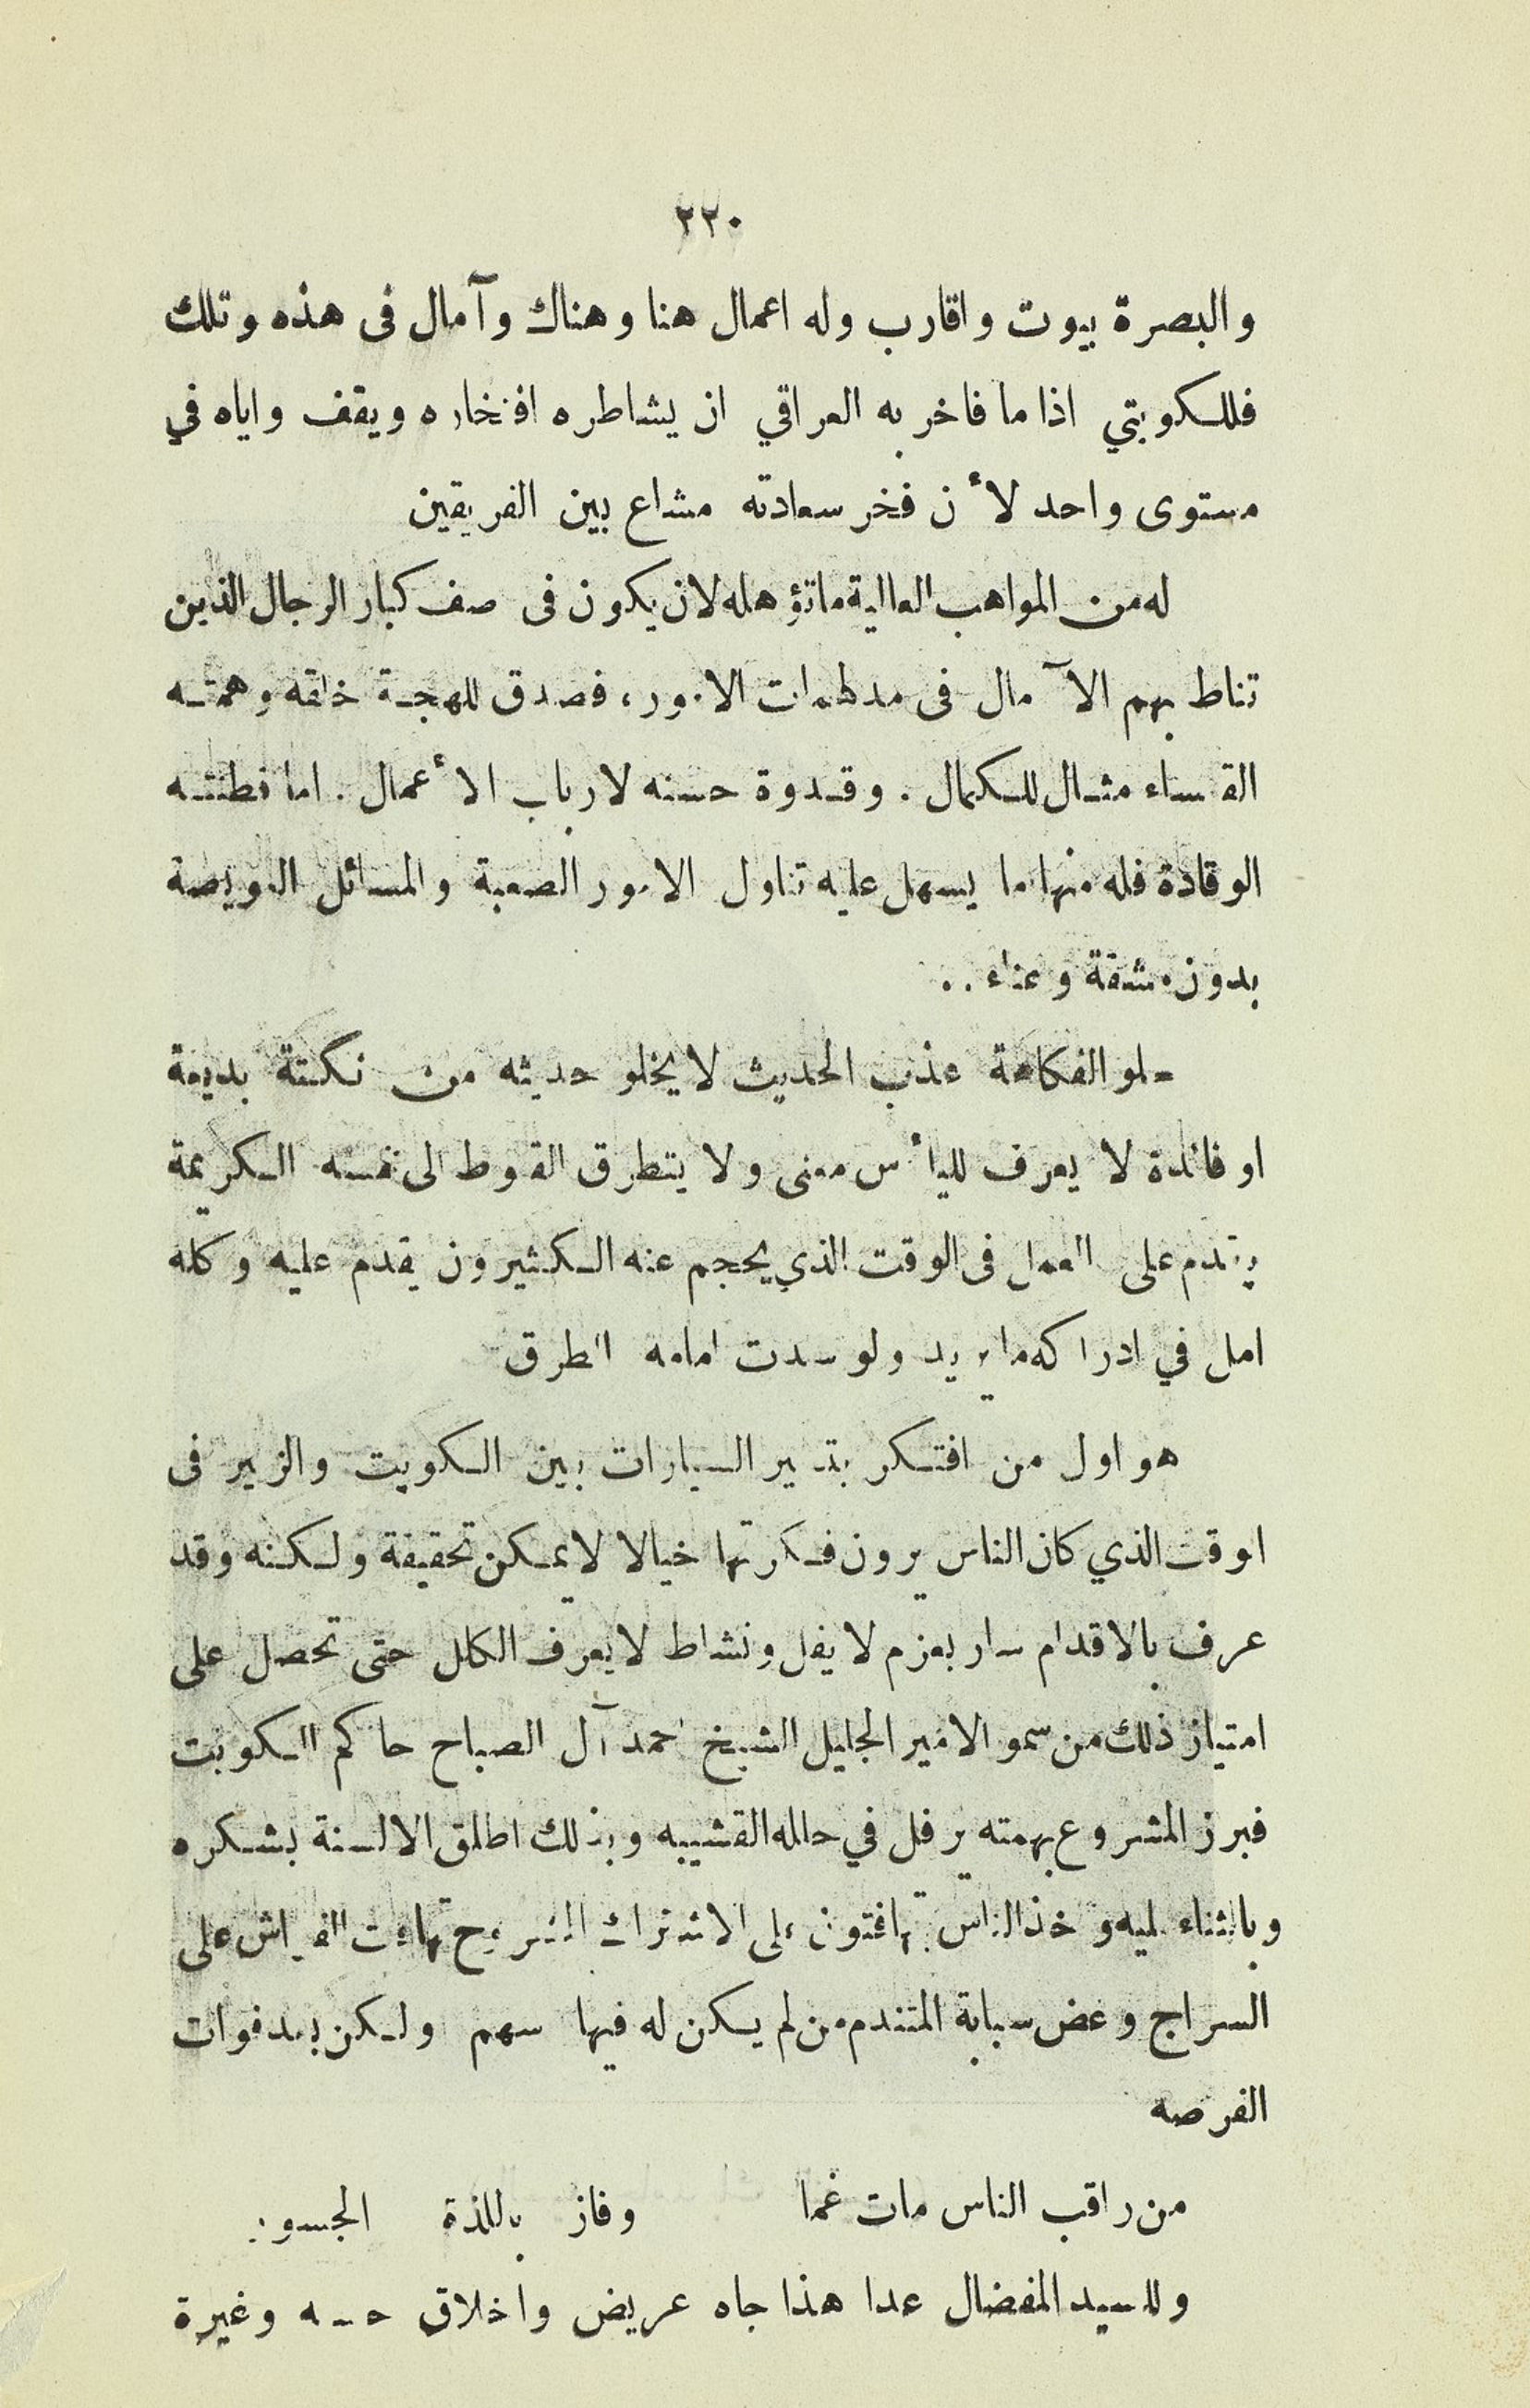 ٢٢٠
والبصرة بيوت واقارب وله اعمال هنا وهناك وآمال فى هذه وتلك
فللكويتي اذا ما فاخر به العراقي ان يشاطره افتخاره ويقف واياه في
مستوى واحد لأن فخر سعادته مشاع بين الفريقين
له من المواهب العالية ما تؤهله لان يكون فى صف كبار الرجال الذين
تناط بهم الآمال فى مدلهمات الامور، فصدق للهجة خلقه وهمته
القعساء مثال للكمال. وقدوة حسنه لارباب الأعمال. اما فطنته
الوقادة فله منها ما يسهل عليه تناول الامور الصعبة والمسائل العويصة
بدون مشقة وعناء..
حلو الفكاهة عذب الحديث لا يخلو حديثه من نكتة بديعة
او فائدة لا يعرف لليأس معنى ولا يتطرق القنوط الى نفسه الكريمة
يقدم على العمل فى الوقت الذي يحجم عنه الكثيرون يقدم عليه وكله
امل في ادراكه ما يريد ولو سدت امامه الطرق
هو اول من افتكر بتسيير السيارات بين الكويت والزبير فى
الوقت الذي كان الناس يرون فكرتها خيالا لا يمكن تحقيقة ولكنه وقد
عرف بالاقدام سار بعزم لا يفل ونشاط لا يعرف الكلل حتى تحصل على
امتياز ذلك من سمو الامير الجليل الشيخ احمد آل الصباح حاكم الكويت
فبرز المشروع بهمته يرفل في حلله القشيبه وبذلك اطلق الالسنة بشكره
وبالثناء عليه واخذ الناس يتهافتون على الاشتراك تهافت الفراش على
السراج وعض سبابة المتندم من لم يكن له فيها سهم ولكن بعد فوات
الفرصه
من راقب الناس مات غما وفاز باللذة الجسور
وللسيد المفضال عدا هذا جاه عريض واخلاق وغيرة